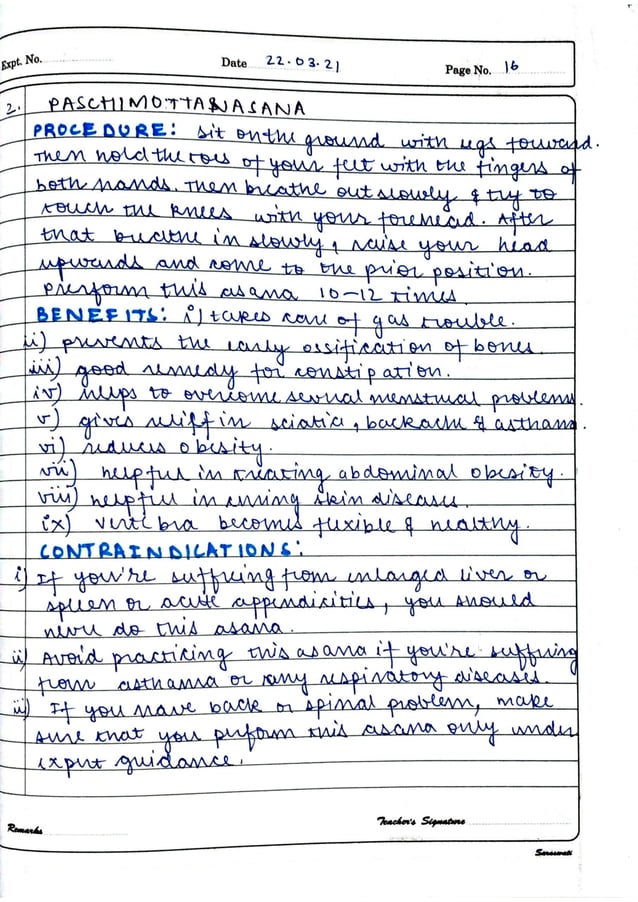 Expt. No.
Date 22.03.21
Page No. 16
2. PASCHIMOTTANASANA
PROCEDURE: Sit on the ground with legs forward.
Then hold the toes of your feet with the fingers of
both hands. Then breathe out slowly & try to
touch the knees with your forehead. After
that breathe in slowly, raise your head
upwards and come to the prior position.
Prerform this asana 10-12 times.
BENEFITS: i) takes care of gas trouble.
ii) prevents the early ossification of bones.
iii) good remedy for constipation.
iv) helps to overcome several menstrual problems.
v) gives reliff in sciatica, backache & asthama.
vi) reduces obesity.
vii) helpful in treating abdominal obesity.
viii) helpful in curing skin diseases.
ix) vertebra becomes flexible & healthy.
CONTRAINDICATIONS:
i) If you're suffering from enlarged liver or
spleen or acute appendicitis, you should
never do this asana.
ii) Avoid practicing this asana if you're suffering
from asthama or any respiratory diseases.
iii) If you have back or spinal problem, make
sure that you perform this asana only under
expert guidance.
Teacher's Signature
Remarks
Saraswati